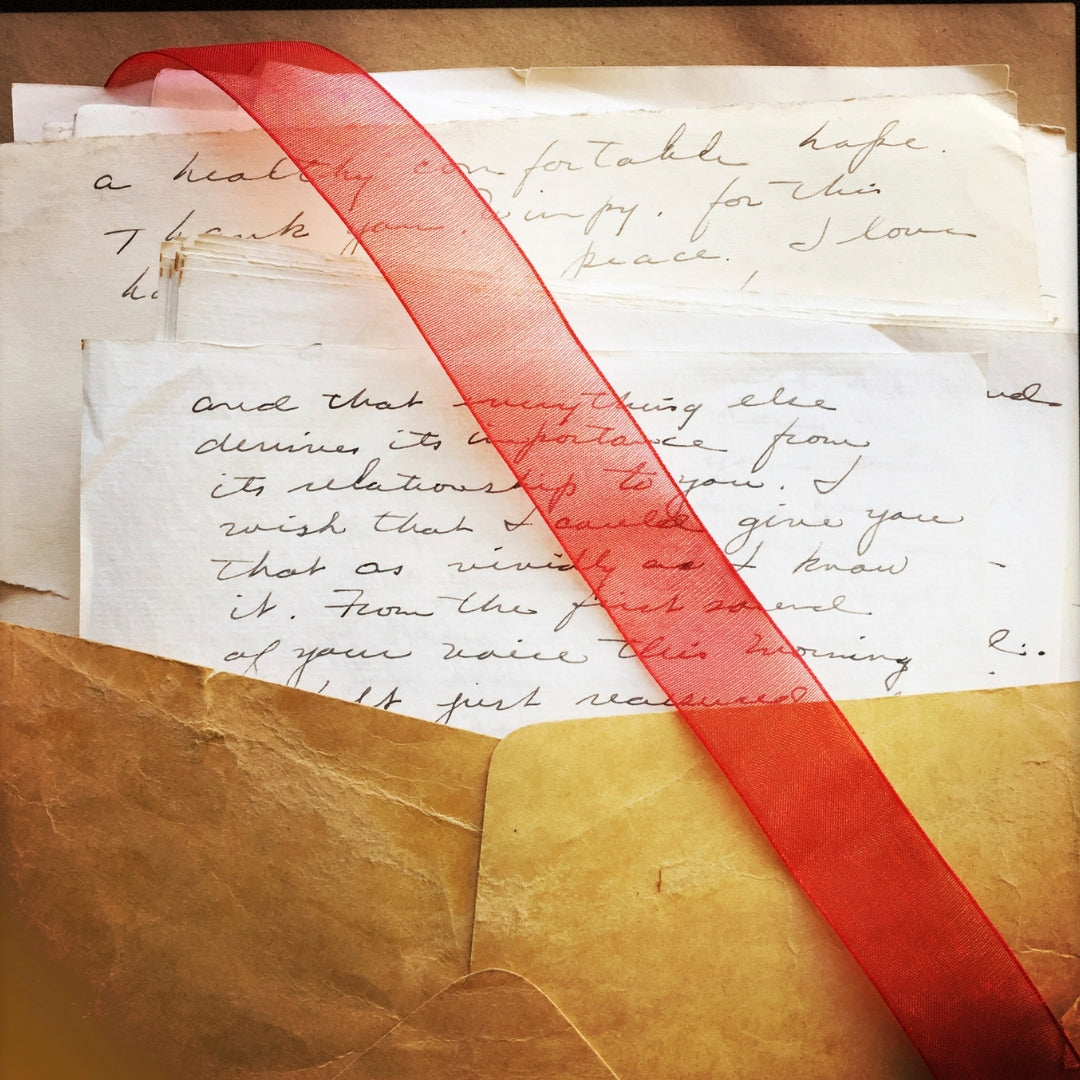 a healthy comfortable hope.
Thank you, Wimpy, for this
peace. I love
and that everything else
derives its importance from
its relationship to you. I
wish that I could give you
that as vividly as I know
it. From the first sound
of your voice this morning
just reassured